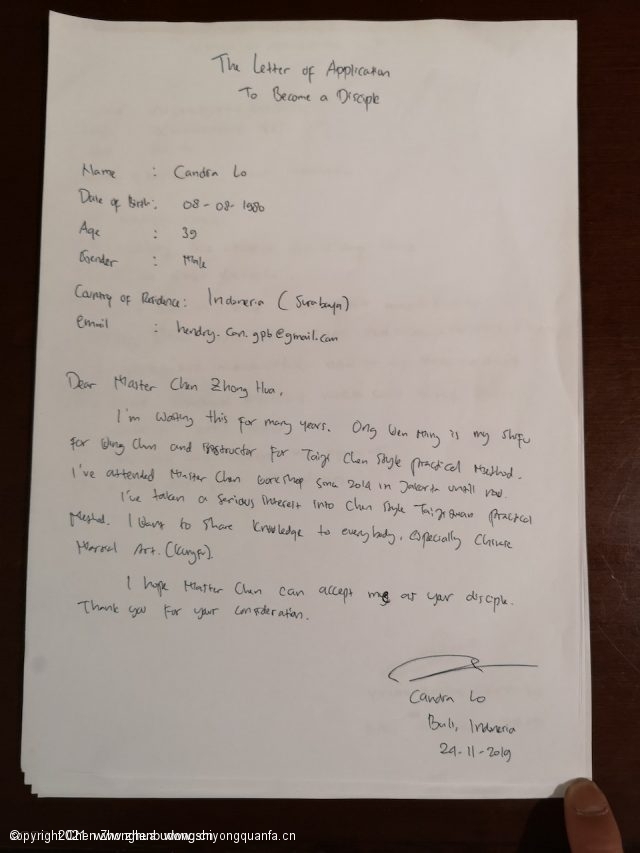 The Letter of Application
To Become a Disciple
Name : Candra Lo
Date of Birth : 08-08-1980
Age : 39
Gender : Male
Country of Residence : Indonesia (Surabaya)
email : hendry.can.gpb@gmail.com
Dear Master Chen Zhong Hua,
I'm waiting this for many years. Ong Wen Ming is my shifu
for Wing Chun and instructor for Taiji Chen Style Practical Method.
I've attended Master Chen workshop since 2014 in Jakarta until now.
I've taken a serious interest into Chen Style Taijiquan Practical
Method. I want to share knowledge to everybody, especially Chinese
Martial Art. (Kungfu).
I hope Master Chen can accept me as your disciple.
Thank you for your consideration.
Candra Lo
Bali, Indonesia
24-11-2019